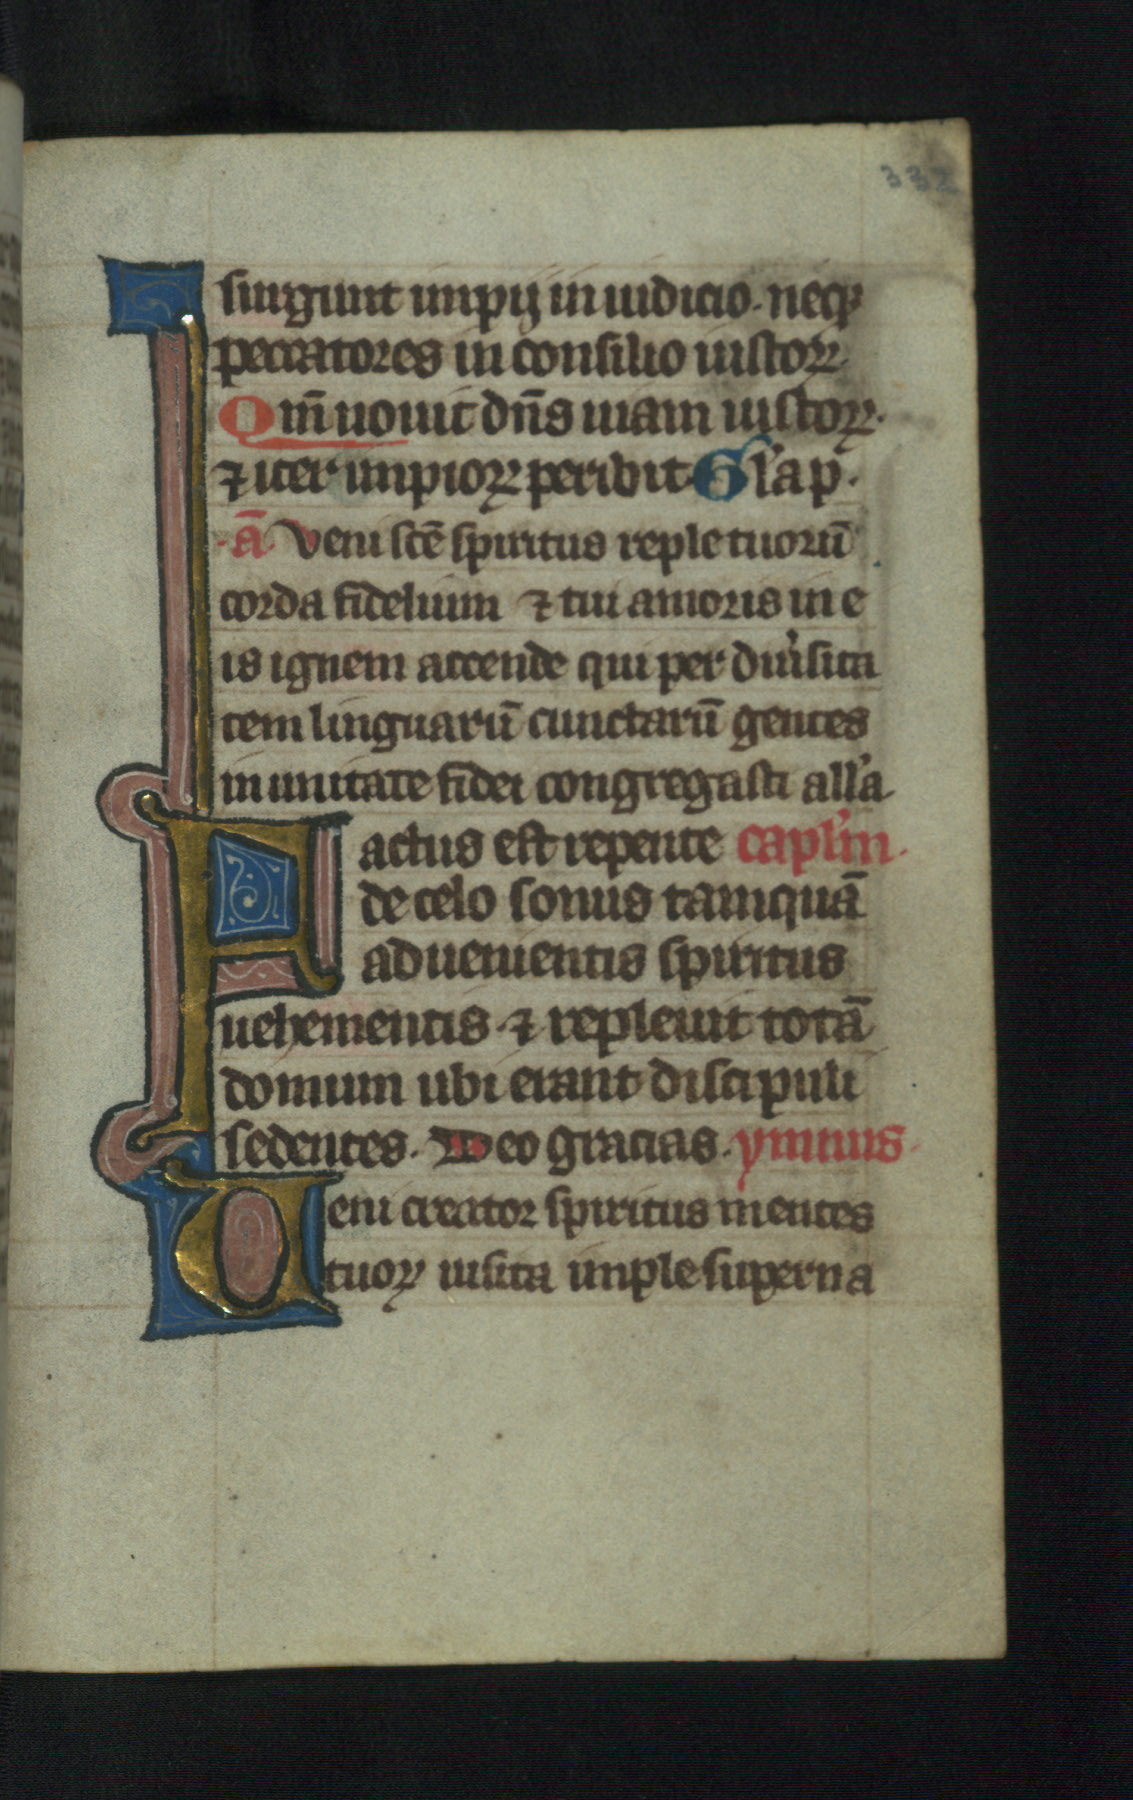 332
surgunt impij in iudicio. neqꝫ
peccatores in consilio iustoꝝ.
Qm̄ nouit dn̄s uiam iustoꝝ.
⁊ iter impioꝝ peribit. Gl'a p̄.
.ā. Veni sc̄e spiritus reple tuorū
corda fidelium ⁊ tui amoris in e
is ignem accende qui per diu'sita
tem linguarū cunctarū gentes
in unitate fidei congregasti all'a.
Factus est repente capl'm.
de celo sonus tamquā
aduenientis spiritus
uehementis ⁊ repleuit totā
domum ubi erant discipuli
sedentes. Deo gracias. ymnus.
Ueni creator spiritus mentes
tuoꝝ uisita imple superna